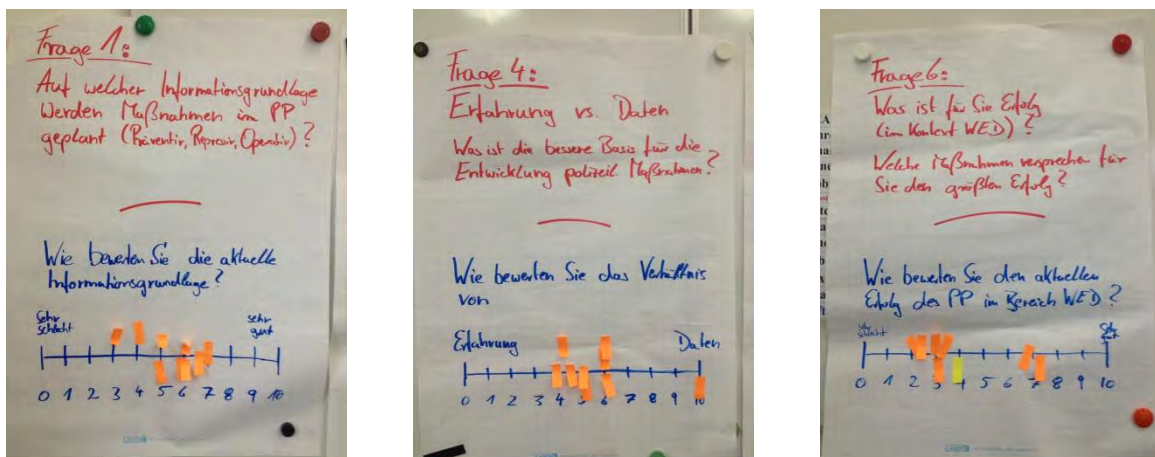 Frage 1:
Auf welcher Informationsgrundlage
werden Maßnahmen im PP
geplant (Präventiv, Repressiv, Operativ)?
Wie bewerten Sie die aktuelle
Informationsgrundlage?
Sehr
schlecht
sehr
gut
0 1 2 3 4 5 6 7 8 9 10
Frage 4:
Erfahrung vs. Daten
Was ist die bessere Basis für die
Entwicklung polizeil Maßnahmen?
Wie bewerten Sie das Verhältnis
von
Erfahrung Daten
0 1 2 3 4 5 6 7 8 9 10
Frage 6:
Was ist für Sie Erfolg
(im Kontext WED)?
Welche Maßnahmen versprechen für
Sie den größten Erfolg?
Wie bewerten Sie den aktuellen
Erfolg des PP im Bereich WED?
sehr
schlecht
Sehr
gut
0 1 2 3 4 5 6 7 8 9 10